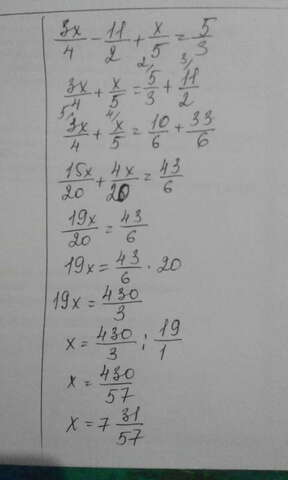 3x/4 - 11/2 + x/5 = 5/3
2, 3,
3x/4 + x/5 = 5/3 + 11/2
5, 4,
3x/4 + x/5 = 10/6 + 33/6
15x/20 + 4x/20 = 43/6
19x/20 = 43/6
19x = 43/6 · 20
19x = 430/3
x = 430/3 : 19/1
x = 430/57
x = 7 31/57